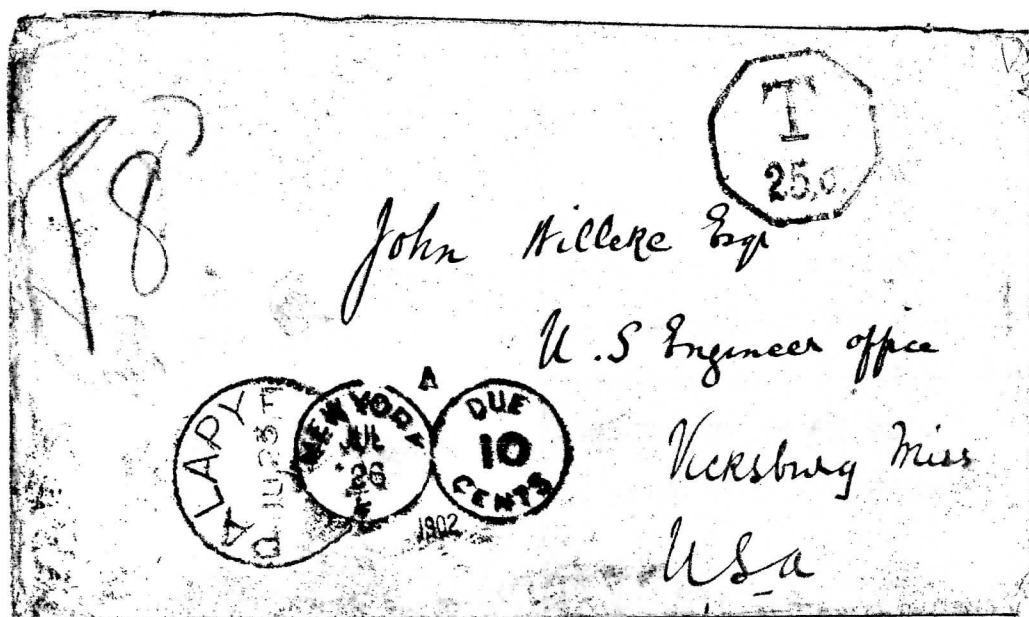 T
25 c.
8
John Willeke Esqr
U.S Engineer office
Vicksburg Miss
USa
PALAPYE
JU 23
A
NEW YORK
JUL
26
DUE
10
CENTS
1902